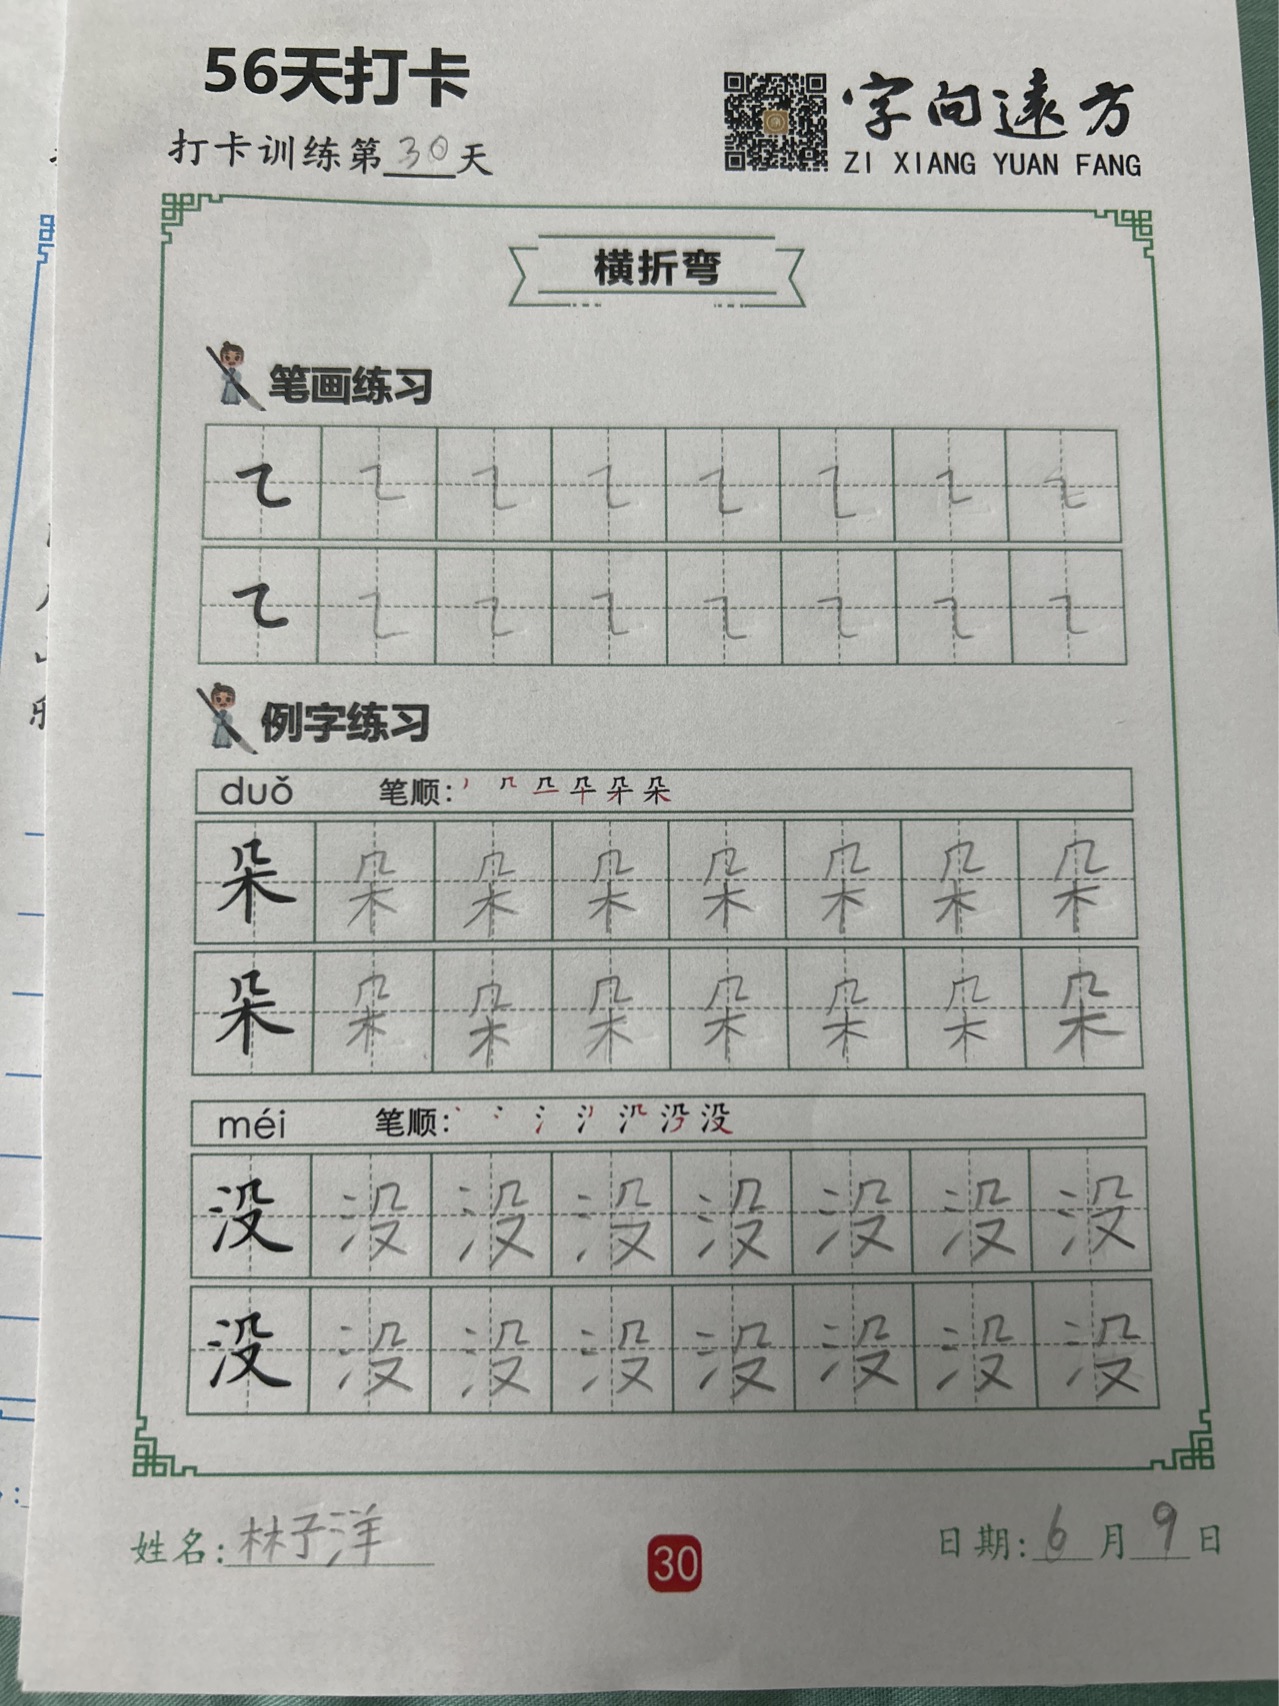 56天打卡
打卡训练第30天
字向远方
ZI XIANG YUAN FANG
横折弯
笔画练习
例字练习
duǒ 笔顺:
朵 朵 朵 朵 朵 朵 朵 朵
朵 朵 朵 朵 朵 朵 朵 朵
méi 笔顺:
没 没 没 没 没 没 没 没
没 没 没 没 没 没 没 没
姓名:林子洋
30
日期:6月9日